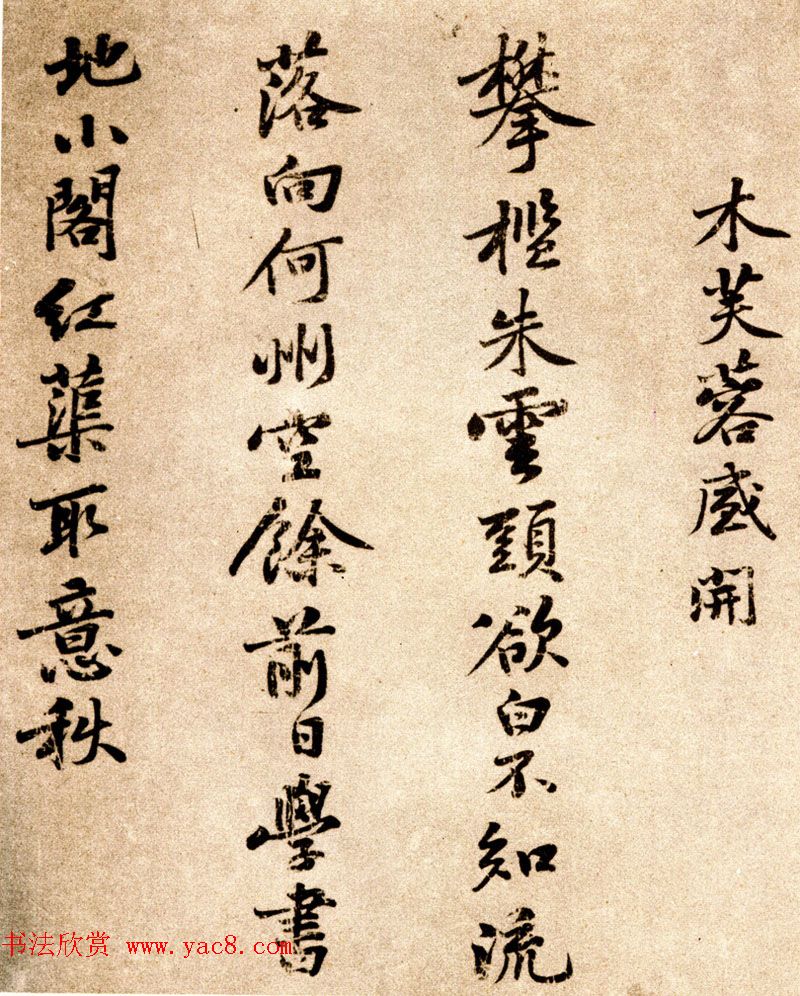 木芙蓉盛開
攀檻朱雲頭欲白不知流
落向何州空餘前日學書
地小閣紅蕖取意秋
书法欣赏 www.yac8.com